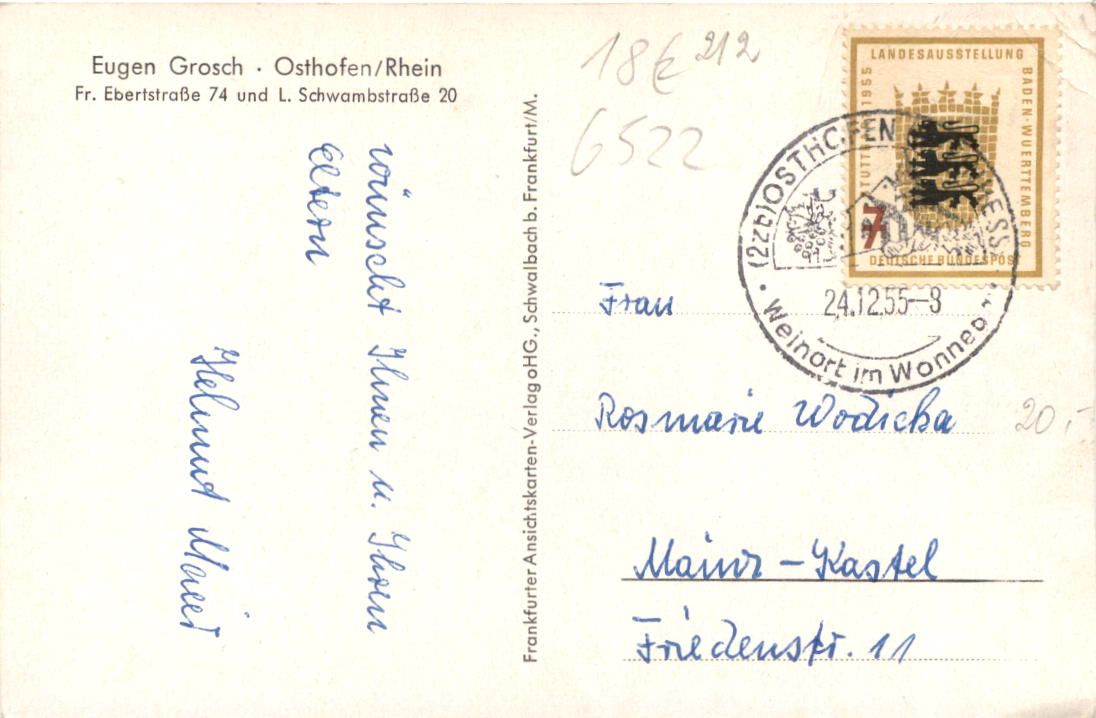 Eugen Grosch · Osthofen/Rhein
Fr. Ebertstraße 74 und L. Schwambstraße 20
wünscht Ihnen u. Ihren
Eltern
Helmut Maier
Frankfurter Ansichtskarten-Verlag oHG., Schwalbach b. Frankfurt/M.
18 € 212
6522
LANDESAUSSTELLUNG
BADEN-WUERTTEMBERG
1955
7
DEUTSCHE BUNDESPOST
(22b) OSTHOFEN
24.12.55-8
Weinort im
Frau
Rosmarie Wodicka
20.-
Mainz-Kastel
Friedenstr. 11